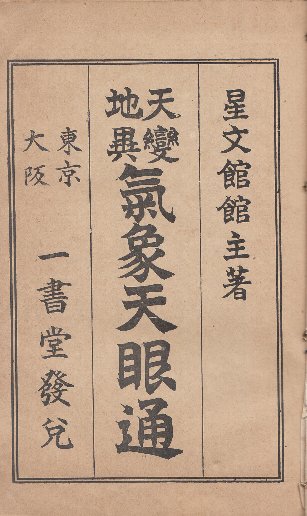 星文館館主著
天變地異
氣象天眼通
東京
大阪
一書堂發兌